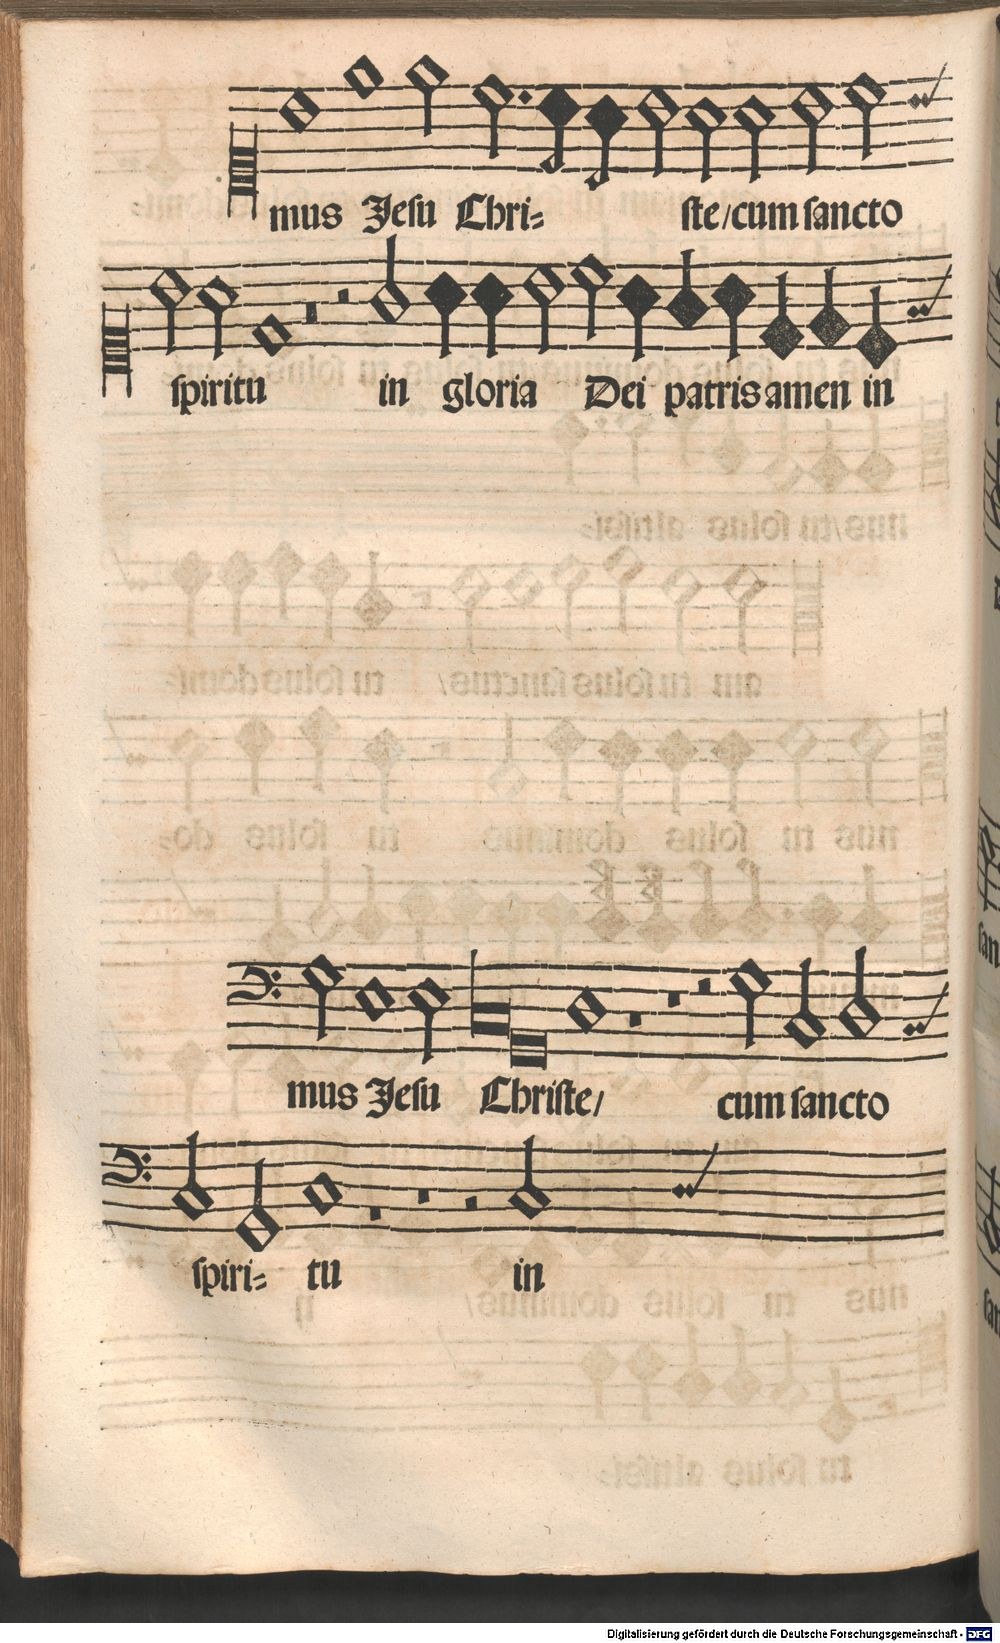 mus Jesu Chri= ste/cum sancto
spiritu in gloria Dei patris amen in
mus Jesu Christe/ cum sancto
spiri= tu in
Digitalisierung gefördert durch die Deutsche Forschungsgemeinschaft - DFG